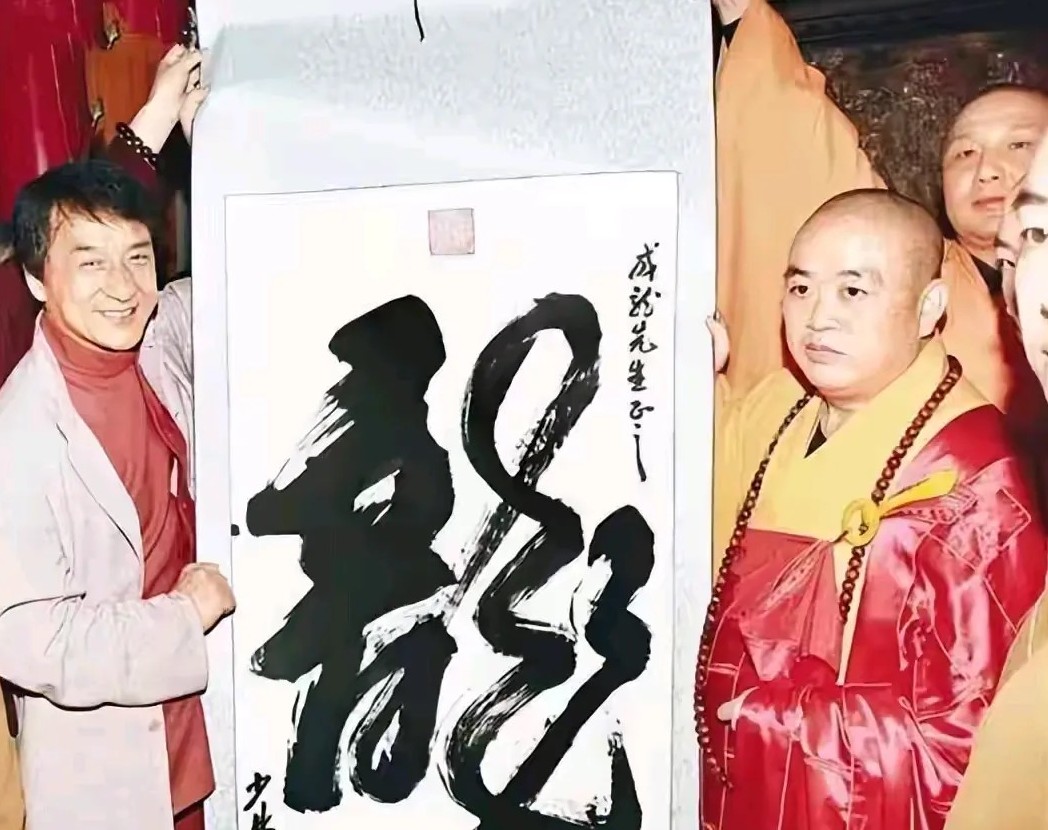 成龙先生正之
龍
少林